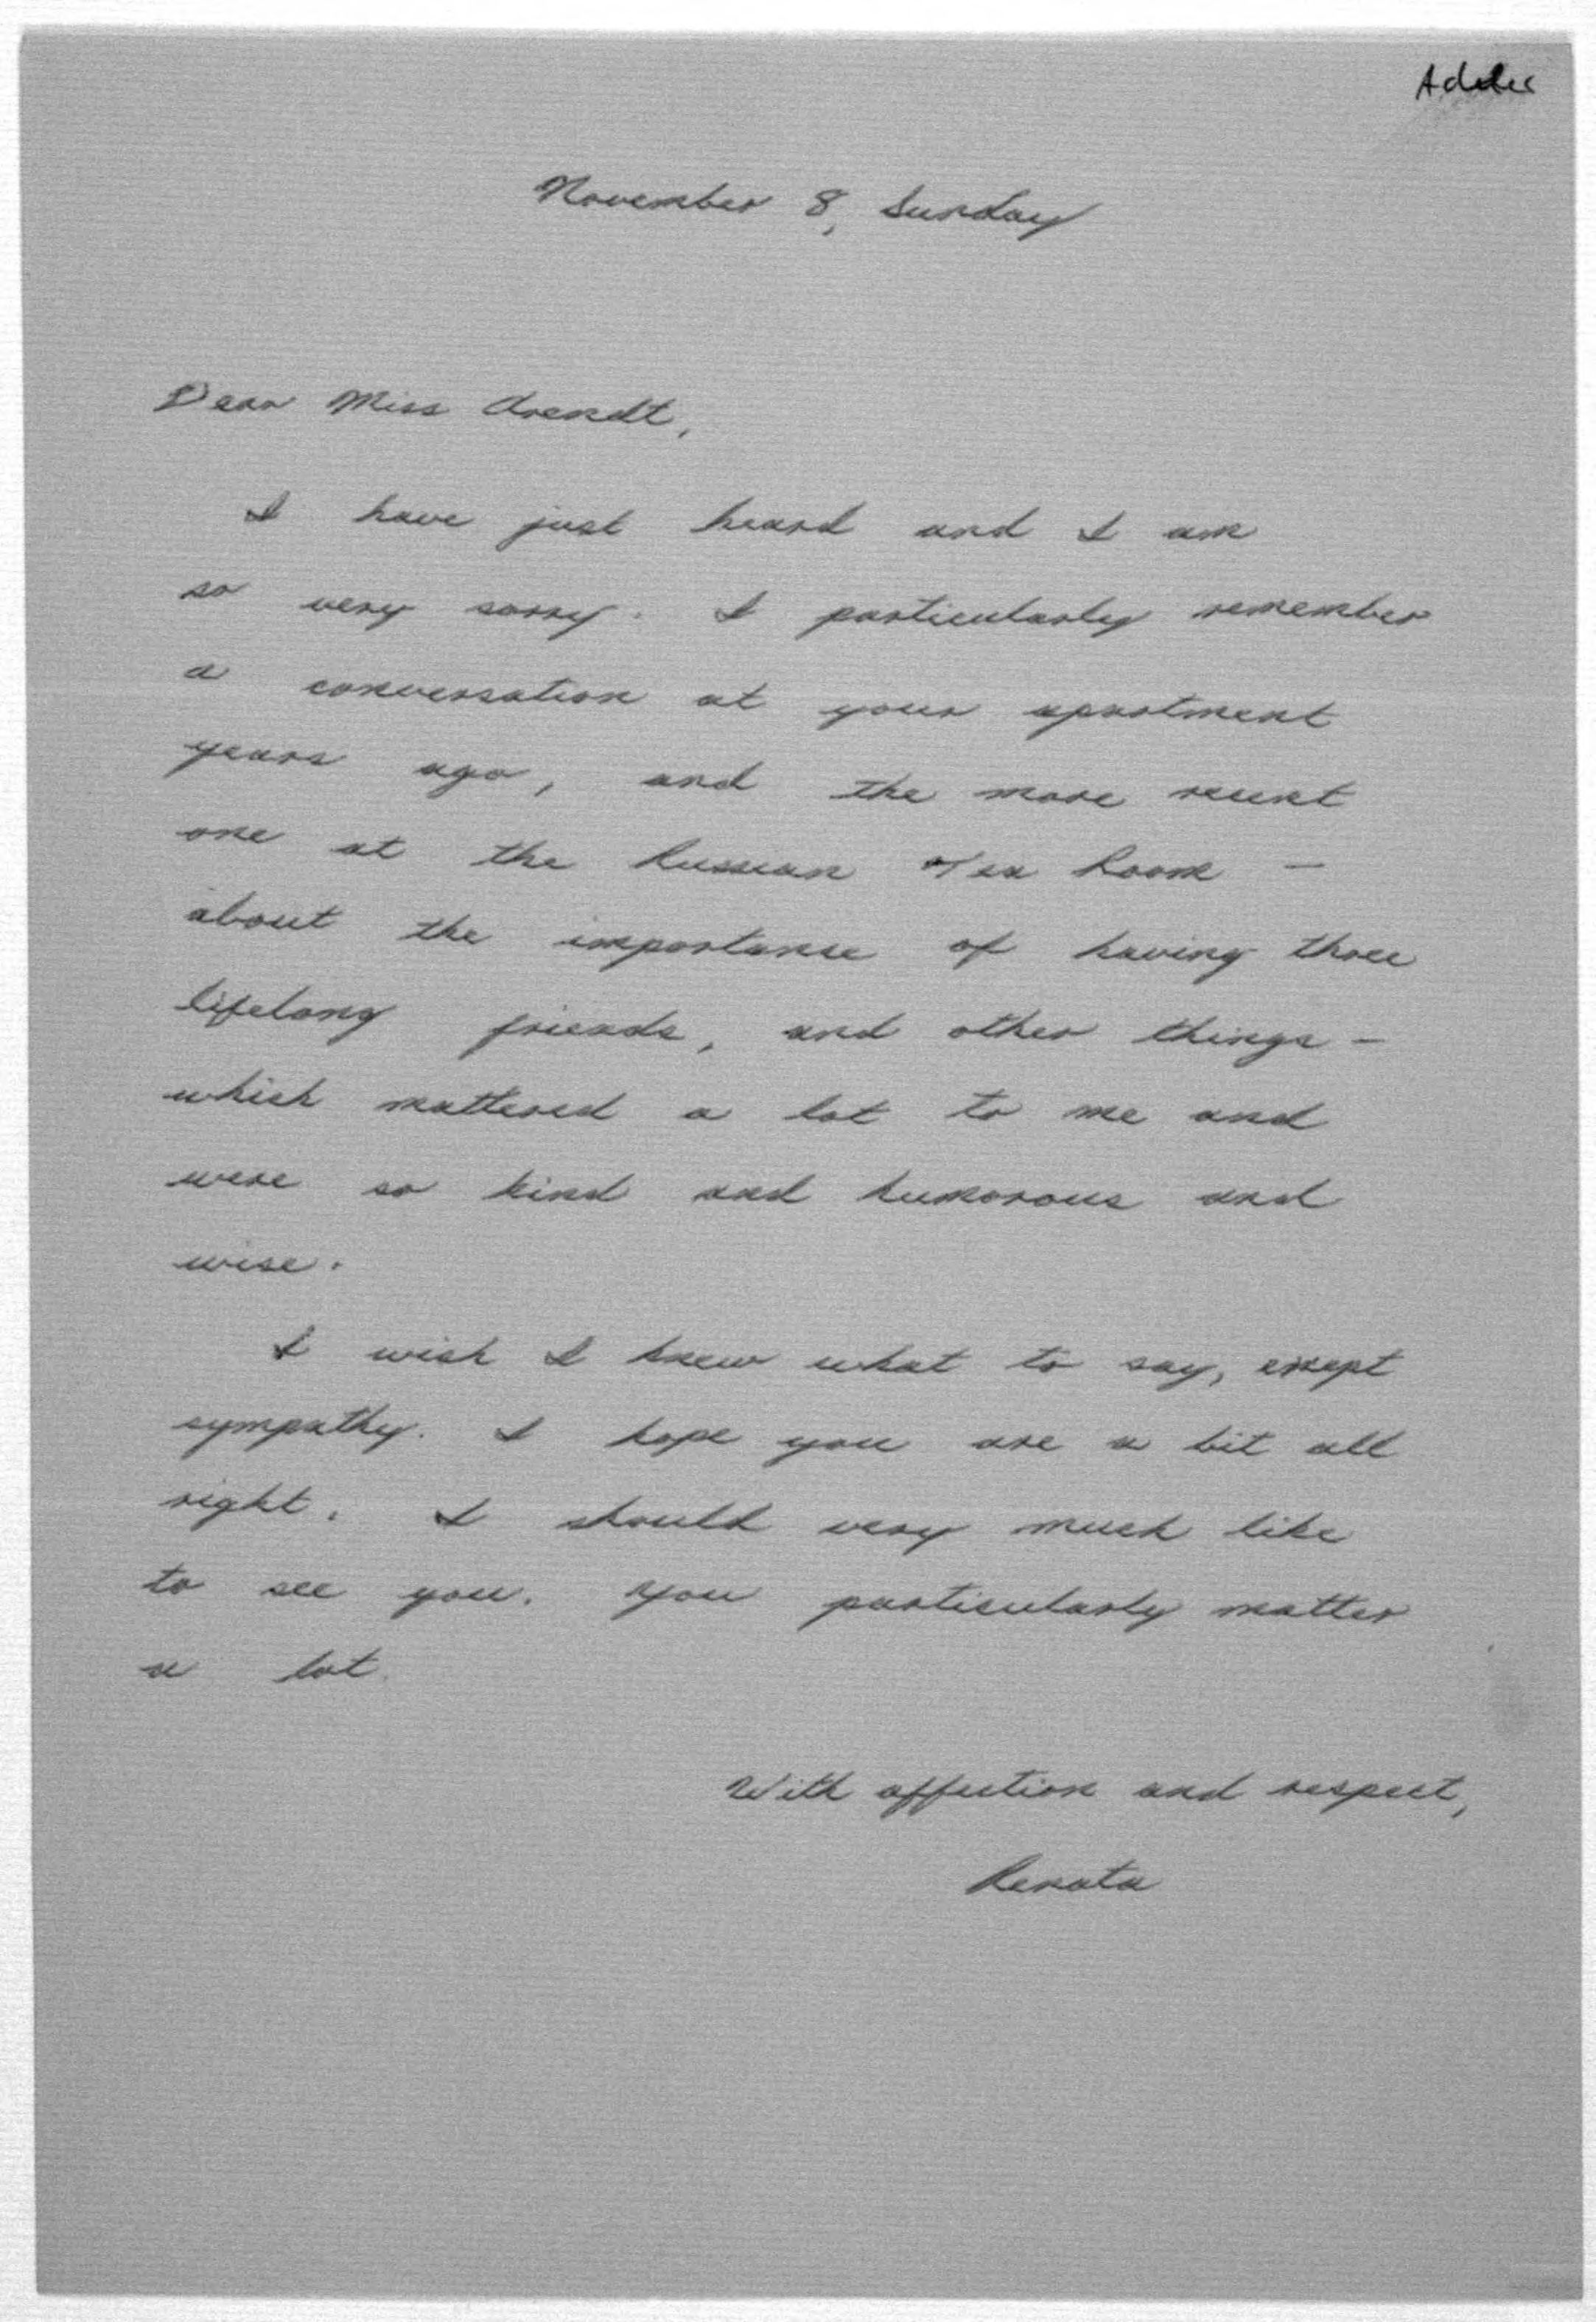 Adler
November 8, Sunday
Dear Miss Arendt,
I have just heard and I am
so very sorry. I particularly remember
a conversation at your apartment
years ago, and the more recent
one at the Russian Tea Room –
about the importance of having three
lifelong friends, and other things –
which mattered a lot to me and
were so kind and humorous and
wise.
I wish I knew what to say, except
sympathy. I hope you are a bit all
right. I should very much like
to see you. You particularly matter
a lot.
With affection and respect,
Renata